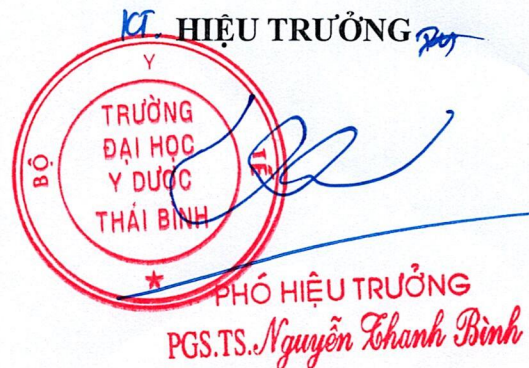 KT. HIỆU TRƯỞNG
BỘ Y TẾ
TRƯỜNG
ĐẠI HỌC
Y DƯỢC
THÁI BÌNH
PHÓ HIỆU TRƯỞNG
PGS.TS. Nguyễn Thanh Bình